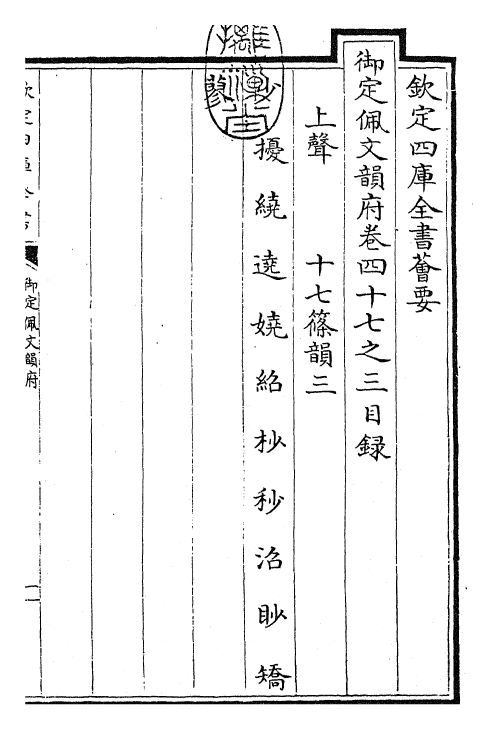 欽定四庫全書薈要
御定佩文韻府卷四十七之三目録
上聲 十七篠韻三
擾 繞 遶 嬈 紹 杪 秒 沼 眇 矯
御定佩文韻府